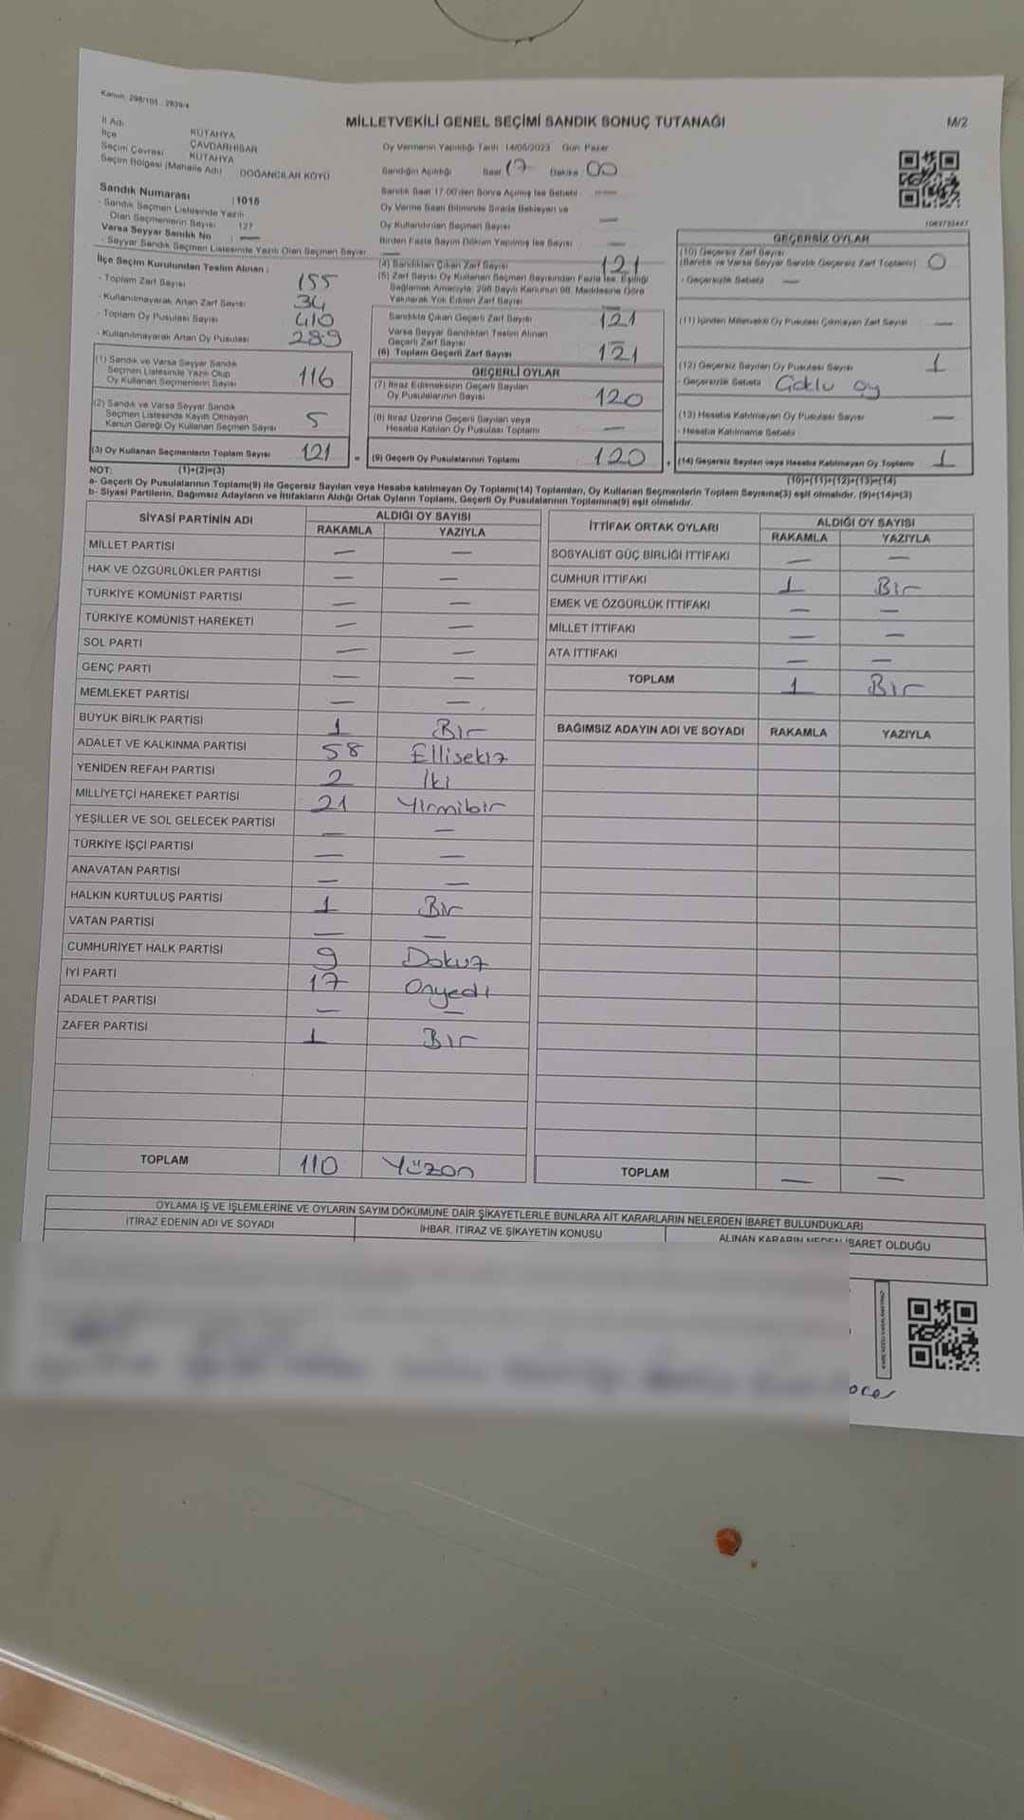 Kanun: 298/105 - 2839/4
MİLLETVEKİLİ GENEL SEÇİMİ SANDIK SONUÇ TUTANAĞI
M/2
İl Adı KÜTAHYA
İlçe ÇAVDARHİSAR
Seçim Çevresi KÜTAHYA
Seçim Bölgesi (Mahalle Adı) DOĞANCILAR KÖYÜ
Oy Vermenin Yapıldığı Tarih 14/05/2023 Gün Pazar
Sandığın Açıldığı Saat 17 Dakika 00
Sandık Saat 17:00'den Sonra Açılmış İse Sebebi —
Oy Verme Saati Bitiminde Sırada Bekleyen ve
Oy Kullandırılan Seçmen Sayısı —
Birden Fazla Sayım Döküm Yapılmış İse Sayısı —
Sandık Numarası : 1015
- Sandık Seçmen Listesinde Yazılı
Olan Seçmenlerin Sayısı 127
Varsa Seyyar Sandık No : —
- Seyyar Sandık Seçmen Listesinde Yazılı Olan Seçmen Sayısı —
İlçe Seçim Kurulundan Teslim Alınan :
- Toplam Zarf Sayısı 155
- Kullanılmayarak Artan Zarf Sayısı 34
- Toplam Oy Pusulası Sayısı 410
- Kullanılmayarak Artan Oy Pusulası 289
(1) Sandık ve Varsa Seyyar Sandık
Seçmen Listesinde Yazılı Olup
Oy Kullanan Seçmenlerin Sayısı 116
(2) Sandık ve Varsa Seyyar Sandık
Seçmen Listesinde Kayıtlı Olmayan
Kanun Gereği Oy Kullanan Seçmen Sayısı 5
(3) Oy Kullanan Seçmenlerin Toplam Sayısı 121
(4) Sandıktan Çıkan Zarf Sayısı 121
(5) Zarf Sayısı Oy Kullanan Seçmen Sayısından Fazla İse, Eşitliği
Sağlamak Amacıyla, 298 Sayılı Kanunun 98. Maddesine Göre
Yakılarak Yok Edilen Zarf Sayısı —
Sandıkta Çıkan Geçerli Zarf Sayısı 121
Varsa Seyyar Sandıktan Teslim Alınan
Geçerli Zarf Sayısı —
(6) Toplam Geçerli Zarf Sayısı 121
GEÇERLİ OYLAR
(7) İtiraz Edilmeksizin Geçerli Sayılan
Oy Pusulalarının Sayısı 120
(8) İtiraz Üzerine Geçerli Sayılan veya
Hesaba Katılan Oy Pusulası Toplamı —
= (9) Geçerli Oy Pusulalarının Toplamı 120
GEÇERSİZ OYLAR
(10) Geçersiz Zarf Sayısı
(Sandık ve Varsa Seyyar Sandık Geçersiz Zarf Toplamı) 0
- Geçersizlik Sebebi —
(11) İçinden Milletvekili Oy Pusulası Çıkmayan Zarf Sayısı —
(12) Geçersiz Sayılan Oy Pusulası Sayısı 1
- Geçersizlik Sebebi Çoklu oy
(13) Hesaba Katılmayan Oy Pusulası Sayısı —
- Hesaba Katılmama Sebebi
+ (14) Geçersiz Sayılan veya Hesaba Katılmayan Oy Toplamı 1
NOT: (1)+(2)=(3) (10)+(11)+(12)+(13)=(14)
a- Geçerli Oy Pusulalarının Toplamı(9) ile Geçersiz Sayılan veya Hesaba katılmayan Oy Toplamı(14) Toplamları, Oy Kullanan Seçmenlerin Toplam Sayısına(3) eşit olmalıdır. (9)+(14)=(3)
b- Siyasi Partilerin, Bağımsız Adayların ve İttifakların Aldığı Ortak Oyların Toplamı, Geçerli Oy Pusulalarının Toplamına(9) eşit olmalıdır.
SİYASİ PARTİNİN ADI ALDIĞI OY SAYISI
RAKAMLA YAZIYLA
MİLLET PARTİSİ — —
HAK VE ÖZGÜRLÜKLER PARTİSİ — —
TÜRKİYE KOMÜNİST PARTİSİ — —
TÜRKİYE KOMÜNİST HAREKETİ — —
SOL PARTİ — —
GENÇ PARTİ — —
MEMLEKET PARTİSİ — —
BÜYÜK BİRLİK PARTİSİ 1 Bir
ADALET VE KALKINMA PARTİSİ 58 Ellisekiz
YENİDEN REFAH PARTİSİ 2 İki
MİLLİYETÇİ HAREKET PARTİSİ 21 Yirmibir
YEŞİLLER VE SOL GELECEK PARTİSİ — —
TÜRKİYE İŞÇİ PARTİSİ — —
ANAVATAN PARTİSİ — —
HALKIN KURTULUŞ PARTİSİ 1 Bir
VATAN PARTİSİ — —
CUMHURİYET HALK PARTİSİ 9 Dokuz
İYİ PARTİ 17 Onyedi
ADALET PARTİSİ — —
ZAFER PARTİSİ 1 Bir
TOPLAM 110 Yüzon
İTTİFAK ORTAK OYLARI ALDIĞI OY SAYISI
RAKAMLA YAZIYLA
SOSYALİST GÜÇ BİRLİĞİ İTTİFAKI — —
CUMHUR İTTİFAKI 1 Bir
EMEK VE ÖZGÜRLÜK İTTİFAKI — —
MİLLET İTTİFAKI — —
ATA İTTİFAKI — —
TOPLAM 1 Bir
BAĞIMSIZ ADAYIN ADI VE SOYADI RAKAMLA YAZIYLA
TOPLAM — —
OYLAMA İŞ VE İŞLEMLERİNE VE OYLARIN SAYIM DÖKÜMÜNE DAİR ŞİKAYETLERLE BUNLARA AİT KARARLARIN NELERDEN İBARET BULUNDUKLARI
İTİRAZ EDENİN ADI VE SOYADI İHBAR, İTİRAZ VE ŞİKAYETİN KONUSU ALINAN KARARIN NEDEN İBARET OLDUĞU